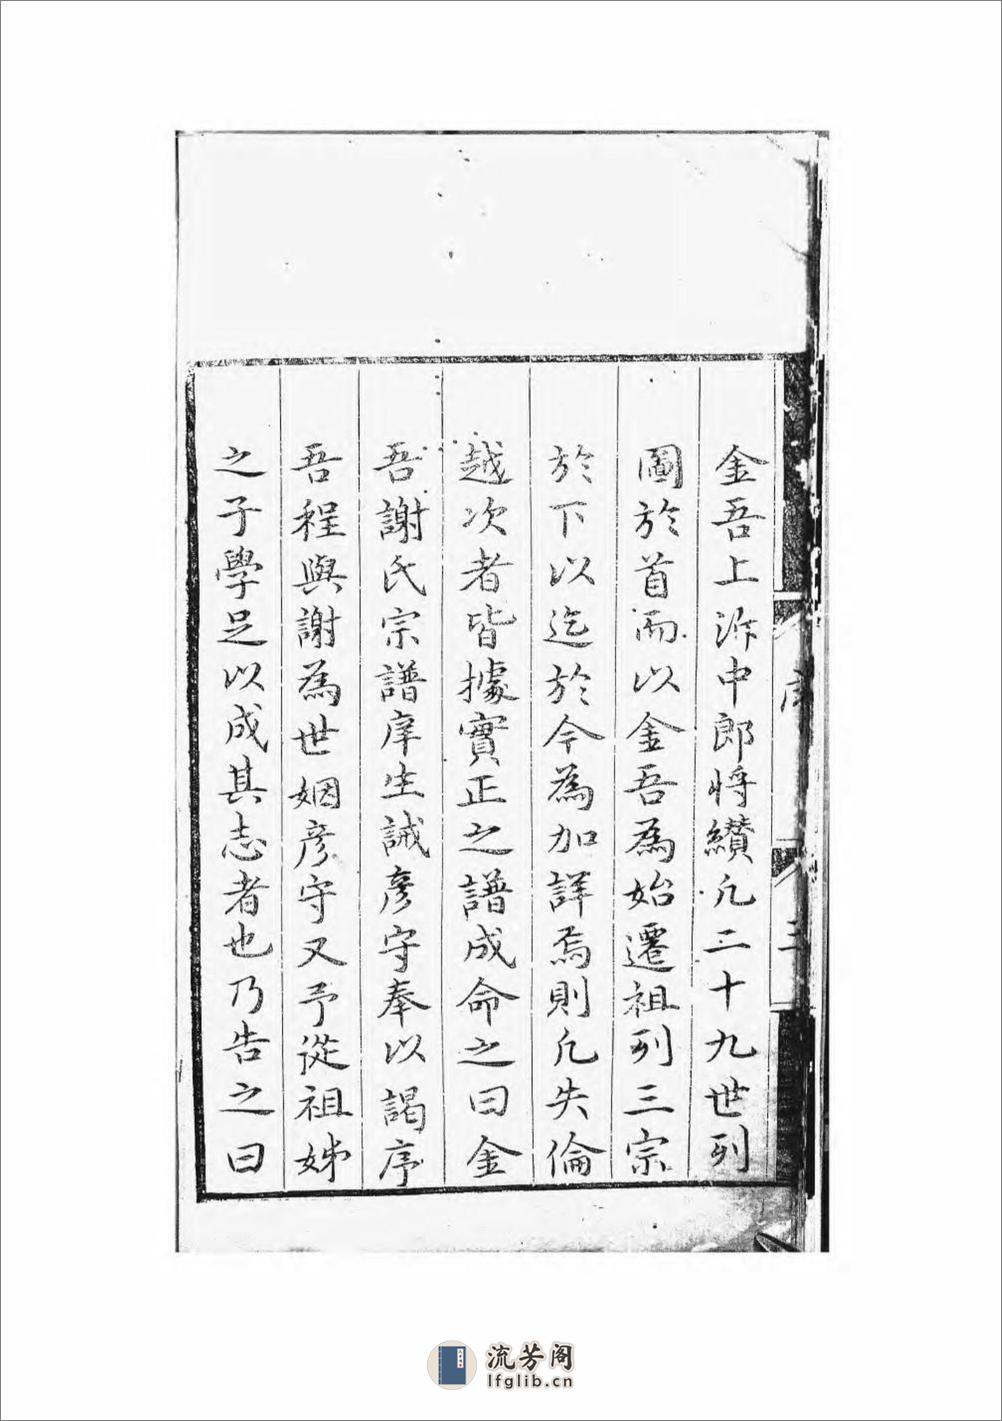 金吾上泝中郎將纘凡二十九世列
圖於首而以金吾為始遷祖列三宗
於下以迄於今為加詳焉則凡失倫
越次者皆據實正之譜成命之曰金
吾謝氏宗譜庠生誡彥守奉以謁序
吾程與謝為世姻彥守又予從祖姊
之子學足以成其志者也乃告之曰
序
三
流芳阁
lfglib.cn